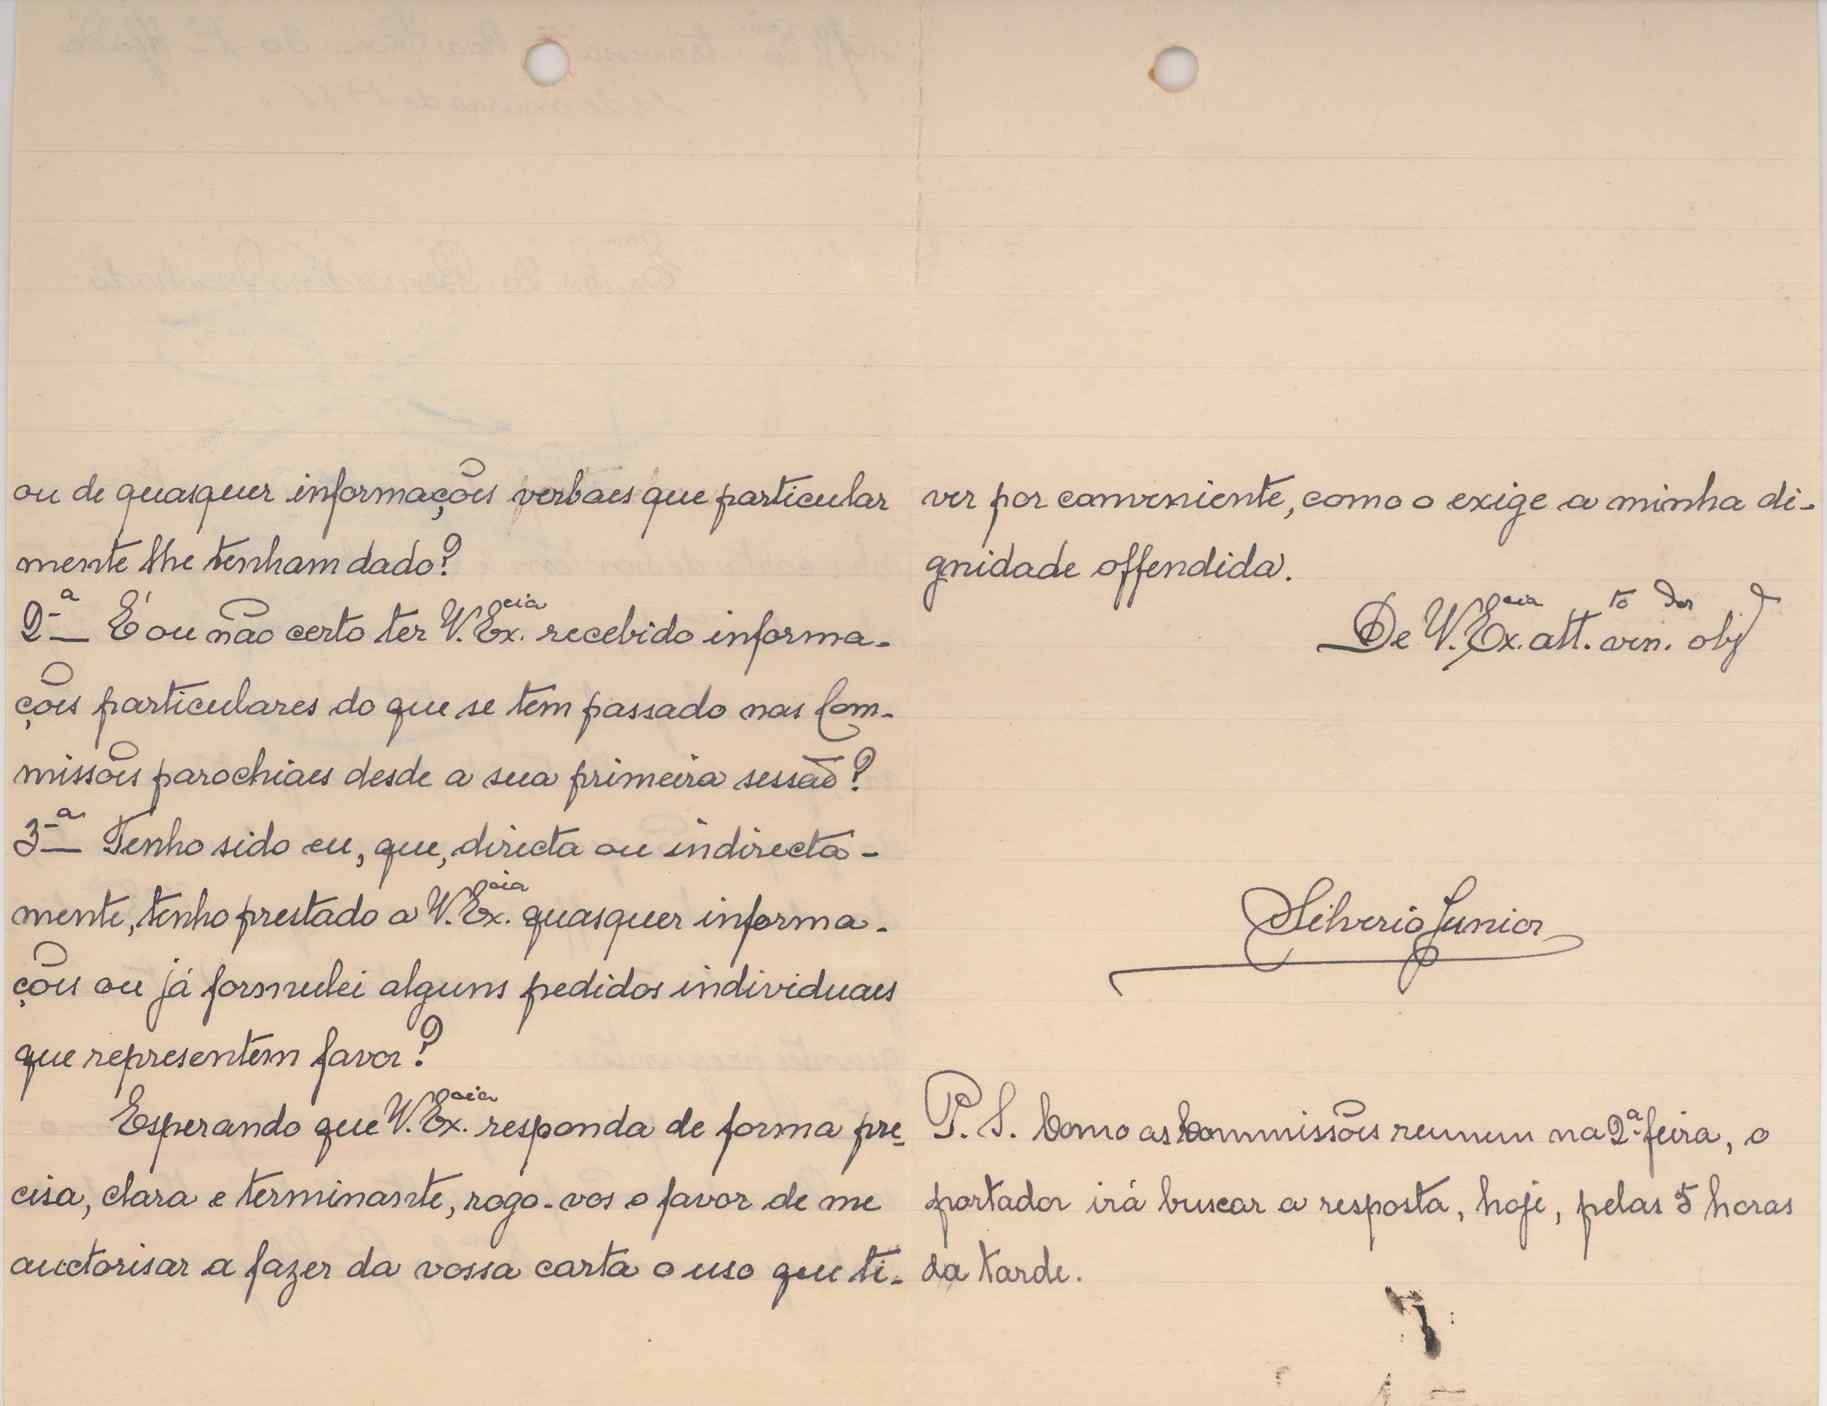 ou de quasquer informações verbaes que particular
mente lhe tenham dado?
2.ª É ou não certo ter V. Ex.cia recebido informa-
ções particulares do que se tem passado nas Com-
missões parochiaes desde a sua primeira sessão?
3.ª Tenho sido eu, que, directa ou indirecta-
mente, tenho prestado a V. Ex.cia quasquer informa-
ções ou já formulei alguns pedidos individuaes
que representem favor?
Esperando que V. Ex.cia responda de forma pre-
cisa, clara e terminante, rogo-vos o favor de me
auctorisar a fazer da vossa carta o uso que ti-
ver por conveniente, como o exige a minha di-
gnidade offendida.
De V. Ex.cia att.to ven.dor obgd
Silverio Junior
P. S. Como as Commissões reunem na 2.ª feira, o
portador irá buscar a resposta, hoje, pelas 5 horas
da tarde.